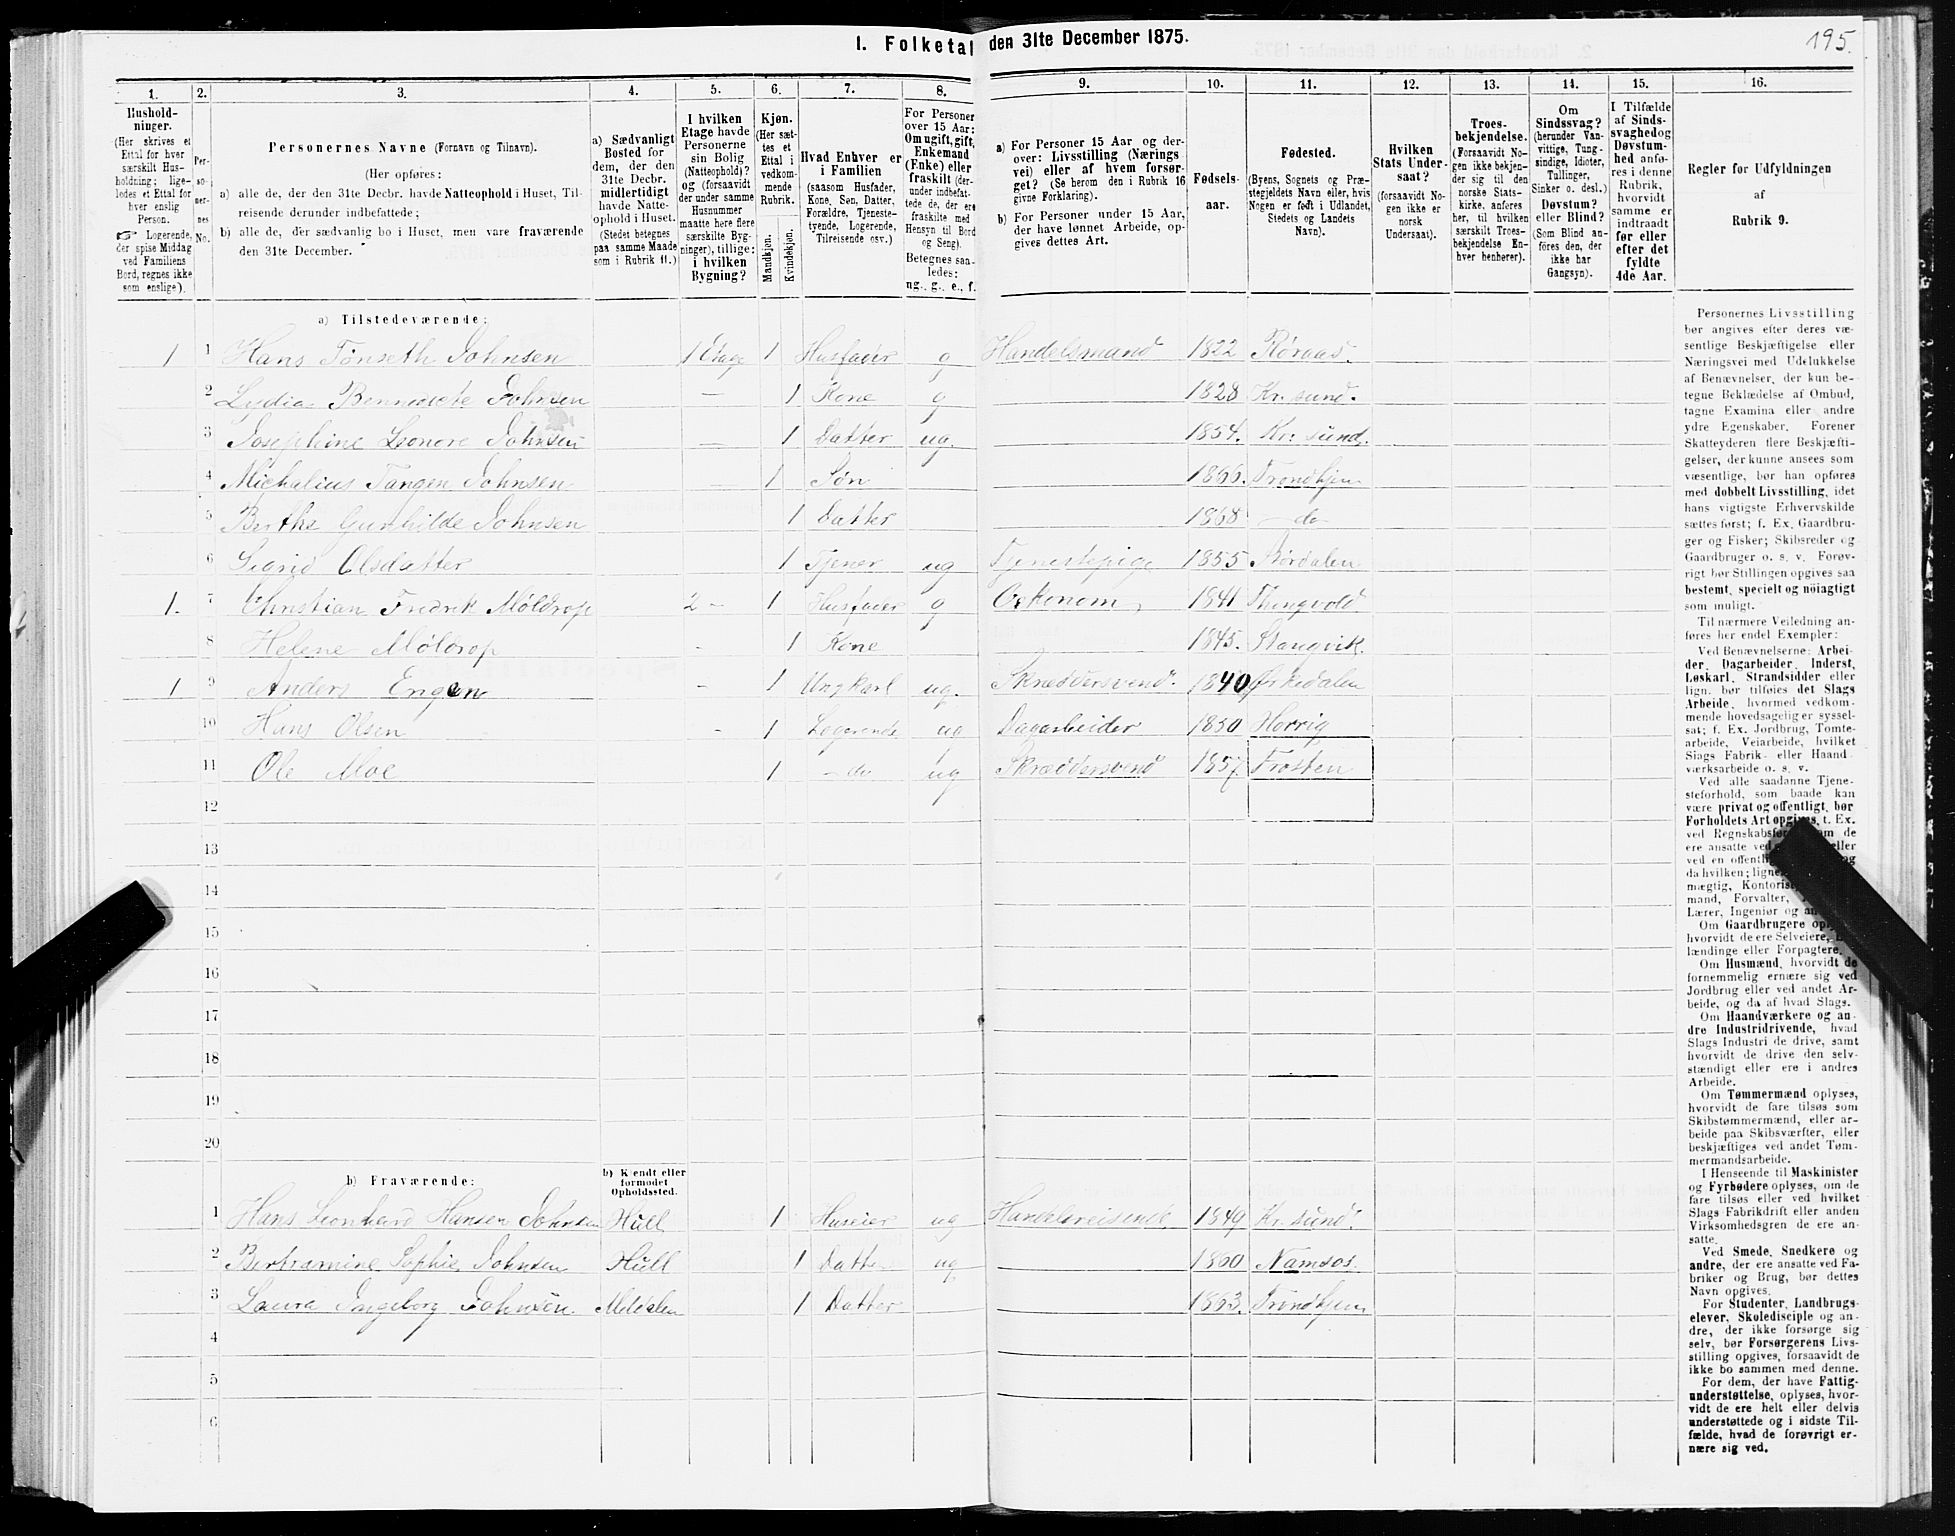 I. Folketal den 31te December 1875.
195.
1. 2. 3. 4. 5. 6. 7. 8. 9. 10. 11. 12. 13. 14. 15. 16.
Hushold-
ninger.
(Her skrives et
Ettal for hver
særskilt Hus-
holdning; lige-
ledes et Ettal for
hver enslig
Person.
☞ Logerende,
der spise Middag
ved Familiens
Bord, regnes ikke
som enslige).
Per-
so-
ner-
nes
No.
Personernes Navne (Fornavn og Tilnavn).
(Her opføres:
a) alle de, der den 31te Decbr. havde Natteophold i Huset, Til-
reisende derunder indbefattede;
b) alle de, der sædvanlig bo i Huset, men vare fraværende
den 31te December.
a) Sædvanligt
Bosted for
dem, der den
31te Decbr.
midlertidigt
havde Natte-
ophold i Huset.
(Stedet betegnes
paa samme Maade
som i Rubrik 11.)
I hvilken
Etage havde
Personerne
sin Bolig
(Natteophold)?
og (forsaavidt
der under samme
Husnummer
maatte høre flere
særskilte Byg-
ninger), tillige:
i hvilken
Bygning?
Kjøn.
(Her sæt-
tes et
Ettal i
vedkom-
mende
Rubrik.
Mandkjøn.
Kvindekjøn.
Hvad Enhver er
i Familien
(saasom Husfader,
Kone, Søn, Datter,
Forældre, Tjeneste-
tyende, Logerende,
Tilreisende osv.)
For Personer
over 15 Aar:
Om ugift, gift,
Enkemand
(Enke) eller
fraskilt (der-
under indbefat-
tede de, der ere
fraskilte med
Hensyn til Bord
og Seng).
Betegnes saa-
ledes:
ug., g., e., f.
a) For Personer 15 Aar og der-
over: Livsstilling (Nærings-
vei) eller af hvem forsør-
get? (Se herom den i Rubrik 16
givne Forklaring).
b) For Personer under 15 Aar,
der have lønnet Arbeide, op-
gives dettes Art.
Fødsels-
aar.
Fødested.
(Byens, Sognets og Præ-
stegjeldets Navn eller, hvis
Nogen er født i Udlandet,
Stedets og Landets
Navn).
Hvilken
Stats Under-
saat?
(forsaavidt No-
gen ikke er
norsk
Undersaat).
Troes-
bekjendelse.
(Forsaavidt No-
gen ikke bekjen-
der sig til den
norske Stats-
kirke, anføres
her, til hvilken
særskilt Troes-
bekjendelse En-
hver henhører).
Om
Sindssvag?
(herunder Van-
vittige, Tung-
sindige, Idioter,
Tullinger,
Sinker o. desl.)
Døvstum?
eller Blind?
(Som Blind an-
føres den, der
ikke har
Gangsyn).
I Tilfælde
af Sinds-
svaghed og
Døvstum-
hed anfø-
res i denne
Rubrik,
hvorvidt
samme er
indtraadt
før eller
efter det
fyldte
4de Aar.
Regler før Udfyldningen
af
Rubrik 9.
a) Tilstedeværende:
1 1 Hans Tønseth Johnsen 1 Etage 1 Husfader g Handelsmand 1822 Røraas.
2 Lydia Bennedicte Johnsen — 1 Kone g 1828 Kr. sund.
3 Josephine Leonore Johnsen — 1 Datter ug. 1854. Kr: sund.
4 Michalius Tangen Johnsen — 1 Søn 1866. Trondhjem
5 Berthe Gunhilde Johnsen 1 Datter 1868 — do
6 Sigrid Olsdatter 1 Tjener ug Tjenestepige 1855 Størdalen
1. 7 Christian Fredrik Møldrop 2 - 1 Husfader g Oekonom 1841 Thingvold
8 Helene Møldrop - 1 Kone 1845. Stangvik.
1 9 Anders Engen - 1 Ungkarl ug. Skræddersvend. 1840 Ørkedalen
10 Hans Olsen - 1 Logerende ug Dagarbeider 1850 Horrig
11 Ole Moe 1 - do ug Skræddersvend 1857. Frosten
12
13
14
15
16
17
18
19
20
b) Fraværende:
b) Kjendt eller
formodet
Opholdssted.
1 Hans Leonhard Hansen Johnsen Hull 1 Huseier ug Handelsreisende 1849 Kr. sund.
2 Bertramine Sophie Johnsen Hull 1 Datter ug 1860 Namsos.
3 Laura Ingeborg Johnsen. Meldalen 1 Datter 1863. Trondhjem
4
5
6
Personernes Livsstilling
bør angives efter deres væ-
sentlige Beskjæftigelse eller
Næringsvei med Udelukkelse
af Benævnelser, der kun be-
tegne Beklædelse af Ombud,
tagne Examina eller andre
ydre Egenskaber. Forener
Skatteyderen flere Beskjæfti-
gelser, der kunne ansees som
væsentlige, bør han opføres
med dobbelt Livsstilling, idet
hans vigtigste Erhvervskilde
sættes først; f. Ex. Gaardbru-
ger og Fisker; Skibsreder og
Gaardbruger o. s. v. Forøv-
rigt bør Stillingen opgives saa
bestemt, specielt og nöiagtigt
som muligt.
Til nærmere Veiledning an-
føres her endel Exempler:
Ved Benævnelserne: Arbei-
der, Dagarbeider, Inderst,
Løskarl, Strandsidder eller
lign. bør tilføies det Slags
Arbeide, hvormed vedkom-
mende hovedsagelig er syssel-
sat; f. Ex. Jordbrug, Tomte-
arbeide, Veiarbeide, hvilket
Slags Fabrik- eller Haand-
værksarbeide o. s. v.
Ved alle saadanne Tjene-
steforhold, som baade kan
være privat og offentligt, bør
Forholdets Art opgives, t. Ex.
ved Regnskabsfør
ere ansatte ved
ved en offentl
da hvilken; lign
mægtig, Kontorist
mand, Forvalter,
Lærer, Ingeniør og an
Om Gaardbrugere oply
hvorvidt de ere Selveiere,
lændinge eller Forpagtere.
Om Husmænd, hvorvidt de
fornemmelig ernære sig ved
Jordbrug eller ved andet Ar-
beide, og da af hvad Slags.
Om Haandværkere og an-
dre Industridrivende, hvad
Slags Industri de drive, samt
hvorvidt de drive den selv-
stændigt eller ere i andres
Arbeide.
Om Tømmermænd oplyses,
hvorvidt de fare tilsøs som
Skibstømmermænd, eller ar-
beide paa Skibsværfter, eller
beskjæftiges ved andet Tøm-
mermandsarbeide.
I Henseende til Maskinister
og Fyrbødere oplyses, om de
fare tilsøs eller ved hvilket
Slags Fabrikdrift eller anden
Virksomhedsgren de ere an-
satte.
Ved Smede, Snedkere og
andre, der ere ansatte ved Fa-
briker og Brug, bør dettes
Navn opgives.
For Studenter, Landbrugs-
elever, Skoledisciple og an-
dre, der ikke forsørge sig
selv, bør Forsørgerens Livs-
stilling opgives, forsaavidt de
ikke bo sammen med denne.
For dem, der have Fattig-
understøttelse, oplyses, hvor-
vidt de ere helt eller delvis
understøttede og i sidste Til-
fælde, hvad de forøvrigt er-
nære sig ved.